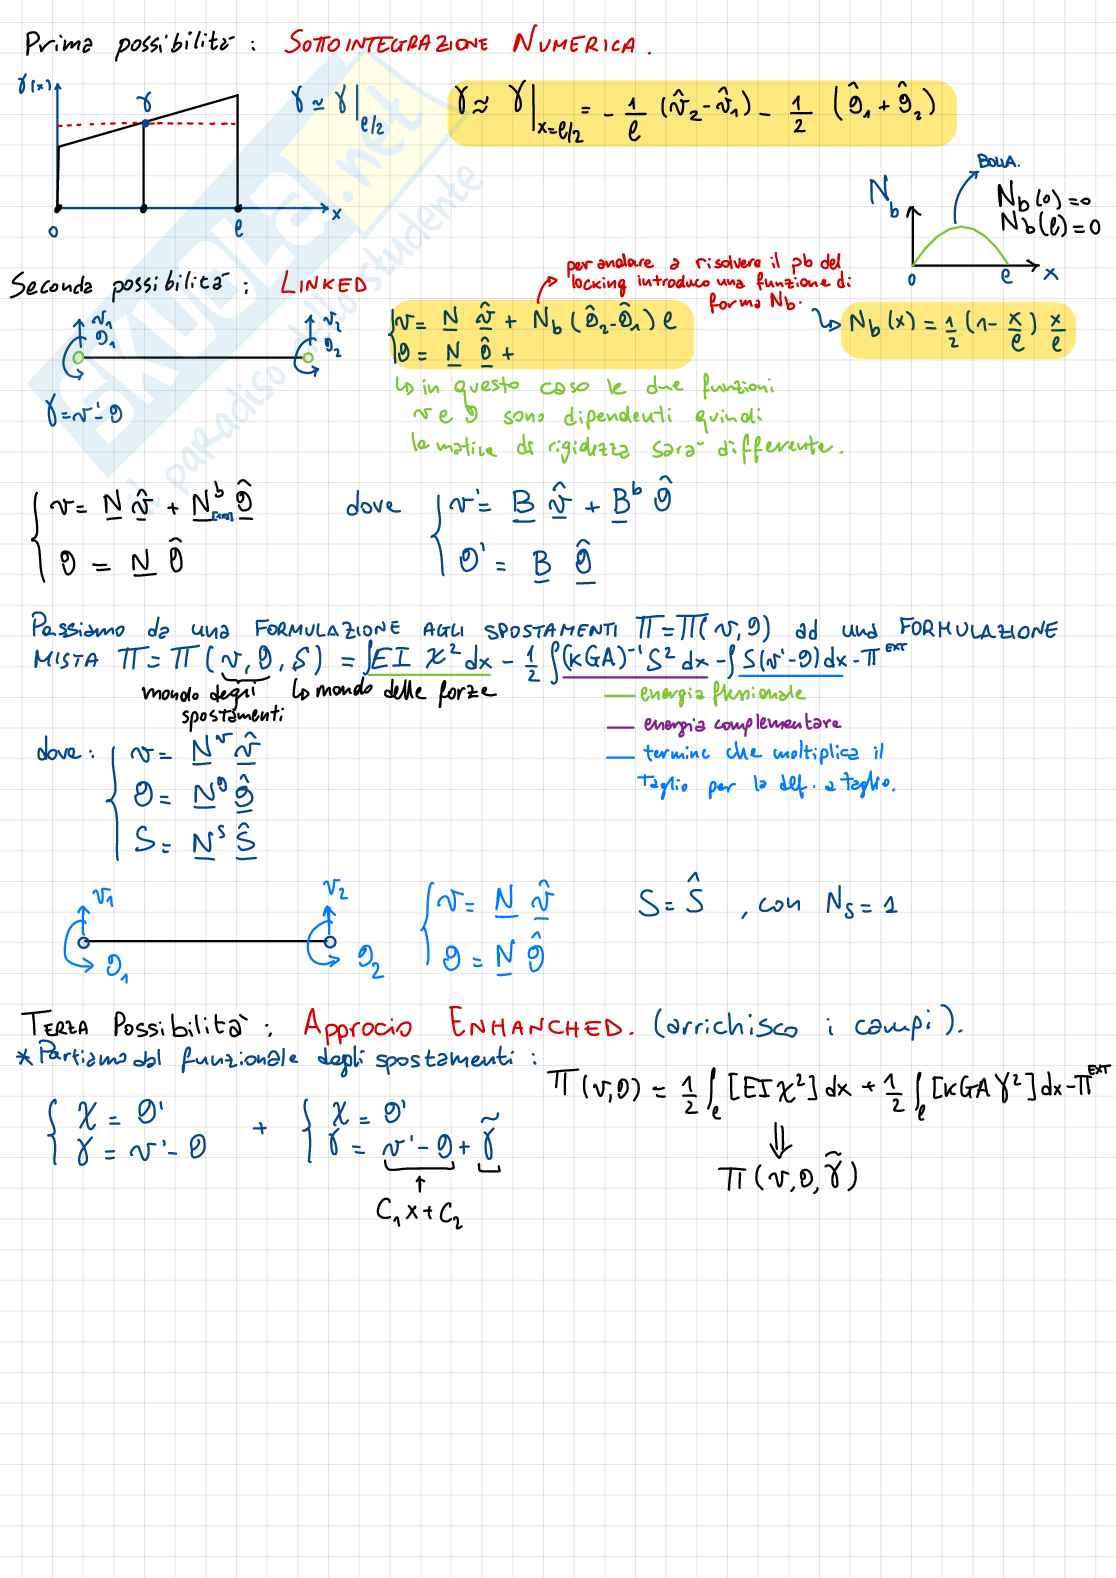 Prima possibilità : SOTTOINTEGRAZIONE NUMERICA.
γ(x)
γ
0
l
x
γ ≃ γ|l/2
γ ≈ γ|x=l/2 = - 1/l (v̂2 - v̂1) - 1/2 (θ̂1 + θ̂2)
BOLLA.
Nb
Nb(0)=0
Nb(l)=0
0
l
x
Seconda possibilità : LINKED
per andare a risolvere il pb del
locking introduco una funzione di
forma Nb.
v1
θ1
v2
θ2
γ=v'-θ
v = N v̂ + Nb (θ̂2-θ̂1) l
θ = N θ̂ +
↳ Nb(x) = 1/2 (1- x/l) x/l
↳ in questo caso le due funzioni
v e θ sono dipendenti quindi
la matrice di rigidezza sarà differente.
v = N v̂ + N^b θ̂
θ = N θ̂
dove
v' = B v̂ + B^b θ̂
θ' = B θ̂
Passiamo da una FORMULAZIONE AGLI SPOSTAMENTI Π=Π(v,θ) ad una FORMULAZIONE
MISTA Π = Π(v,θ,S) = ∫EI χ² dx - 1/2 ∫(KGA)⁻¹ S² dx - ∫S(v'-θ)dx - Π^EXT
mondo degli
spostamenti
↳ mondo delle forze
energia flessionale
energia complementare
termine che moltiplica il
taglio per la def. a taglio.
dove :
v = N^v v̂
θ = N^θ θ̂
S = N^S Ŝ
v1
θ1
v2
θ2
v = N v̂
θ = N θ̂
S = Ŝ , con NS = 1
TERZA Possibilità : Approcio ENHANCHED. (arrichisco i campi).
* Partiamo dal funzionale degli spostamenti :
Π(v,θ) = 1/2 ∫l [EI χ²] dx + 1/2 ∫l [KGA γ²] dx - Π^EXT
χ = θ'
γ = v' - θ
+
χ = θ'
γ = v' - θ + γ̃
↑
C1 x + C2
⇓
Π(v,θ,γ̃)
SKUOLA.net
il paradiso dello studente